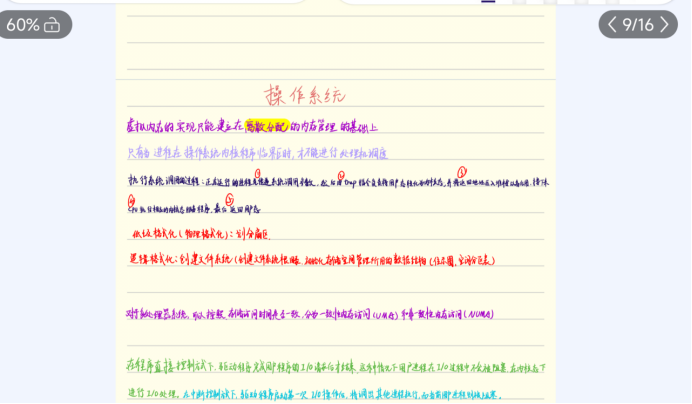 60%
9/16
操作系统
虚拟内存的实现只能建立在离散分配的内存管理的基础上
只有当进程在操作系统内核程序临界区时,才不能进行处理机调度
执行系统调用的过程:正在运行的进程先传递系统调用参数,然后由trap指令负责将用户态转化为内核态,并将返回地址压入堆栈以备后用,接下来
CPU执行相应的内核态服务程序,最后返回用户态
低级格式化(物理格式化):划分扇区
逻辑格式化:创建文件系统(创建文件系统根目录、初始化存储空间管理所用的数据结构(位示图、空闲分区表)
对多处理器系统,可以按照存储访问时间是否一致,分为一致性内存访问(UMA)和非一致性内存访问(NUMA)
在程序直接控制方式下,驱动程序完成用户程序的I/O请求后才结束,这种情况下用户进程在I/O过程中不会被阻塞,在内核态下
进行I/O处理。在中断控制方式下,驱动程序启动第一次I/O操作后,将调出其他进程执行,而当前用户进程则被阻塞。